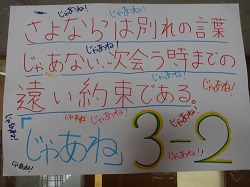 さよならは別れの言葉
じゃあね!
じゃあない、次会う時までの
じゃあね!
遠い約束である。
じゃあね!
じゃあね!
じゃあね!
じゃあね!
「じゃあね」
3-2
じゃあね!
じゃあね!
じゃあね!!